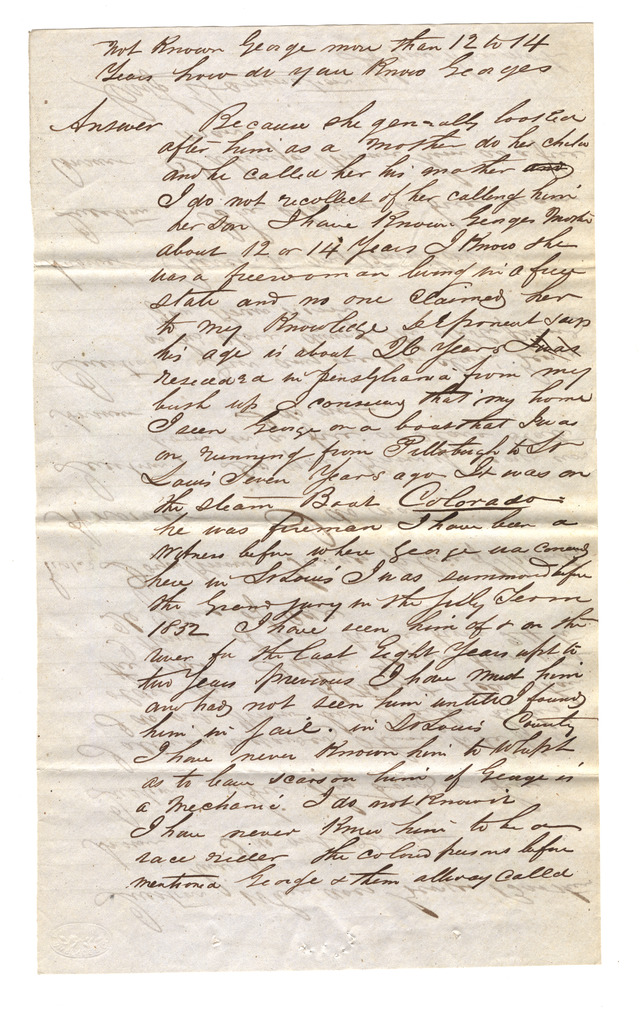 Not Known George more than 12 to 14
Years how do you Know Georges
Answer Because she generally looked
after him as a mother do her
and he called her his mother and
I do not recollect of her calling him
her Son I have Known Georges Mother
about 12 or 14 Years I Know she
was a freewoman living in a free
state and no one claimed her
to my Knowledge says
his age is about 26 Years I was
in from my
up I my home
I seen George on a boat that I was
on running from Pittsburgh to St
Louis Seven Years ago It was on
the steam Boat Colorado
he was fireman I have been a
Witness before where George was
here in St Louis I was before
the Grand jury in the July Term
1852 I have seen him off & on the
river for the last Eight Years up to
two Years previous I have him
and had not seen him until I found
him in jail. in St Louis County
I have never Known him to Whipt
as to leave scars on him if George is
a Mechanic. I do not Know it
I have never Knew him to be a
race rider the persons before
mentioned George & them allway called